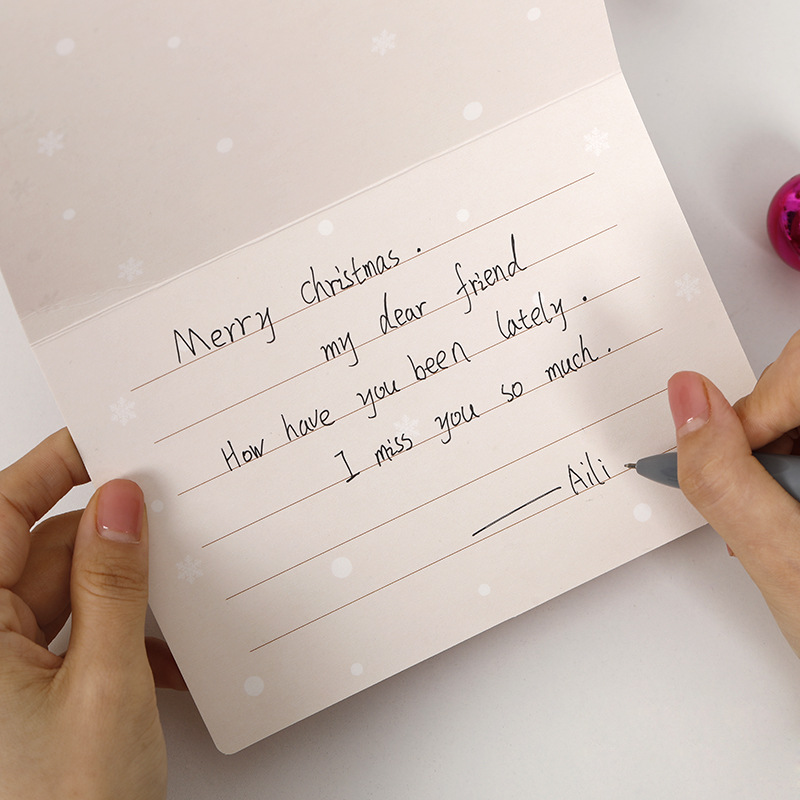 Merry christmas.
my dear friend
How have you been lately.
I miss you so much.
——Aili